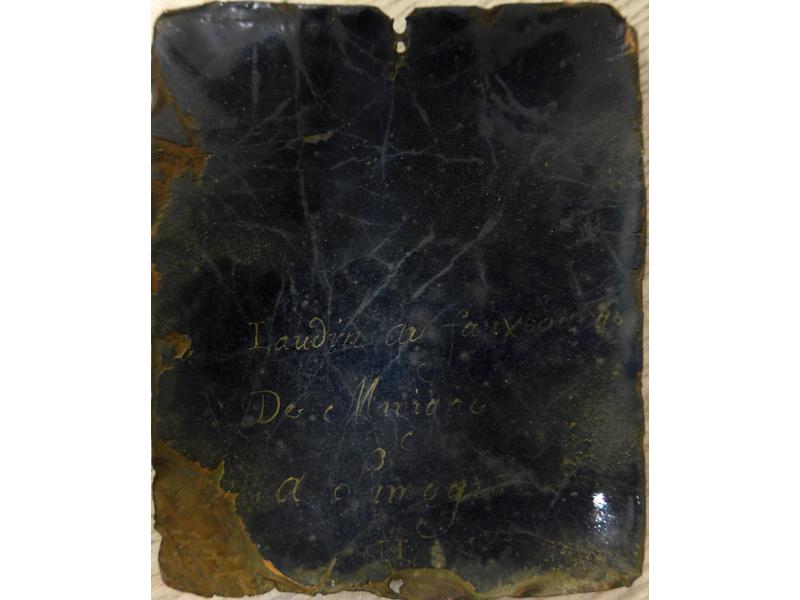 Laudin au fauxbourgs
De Manigne
A Limoges